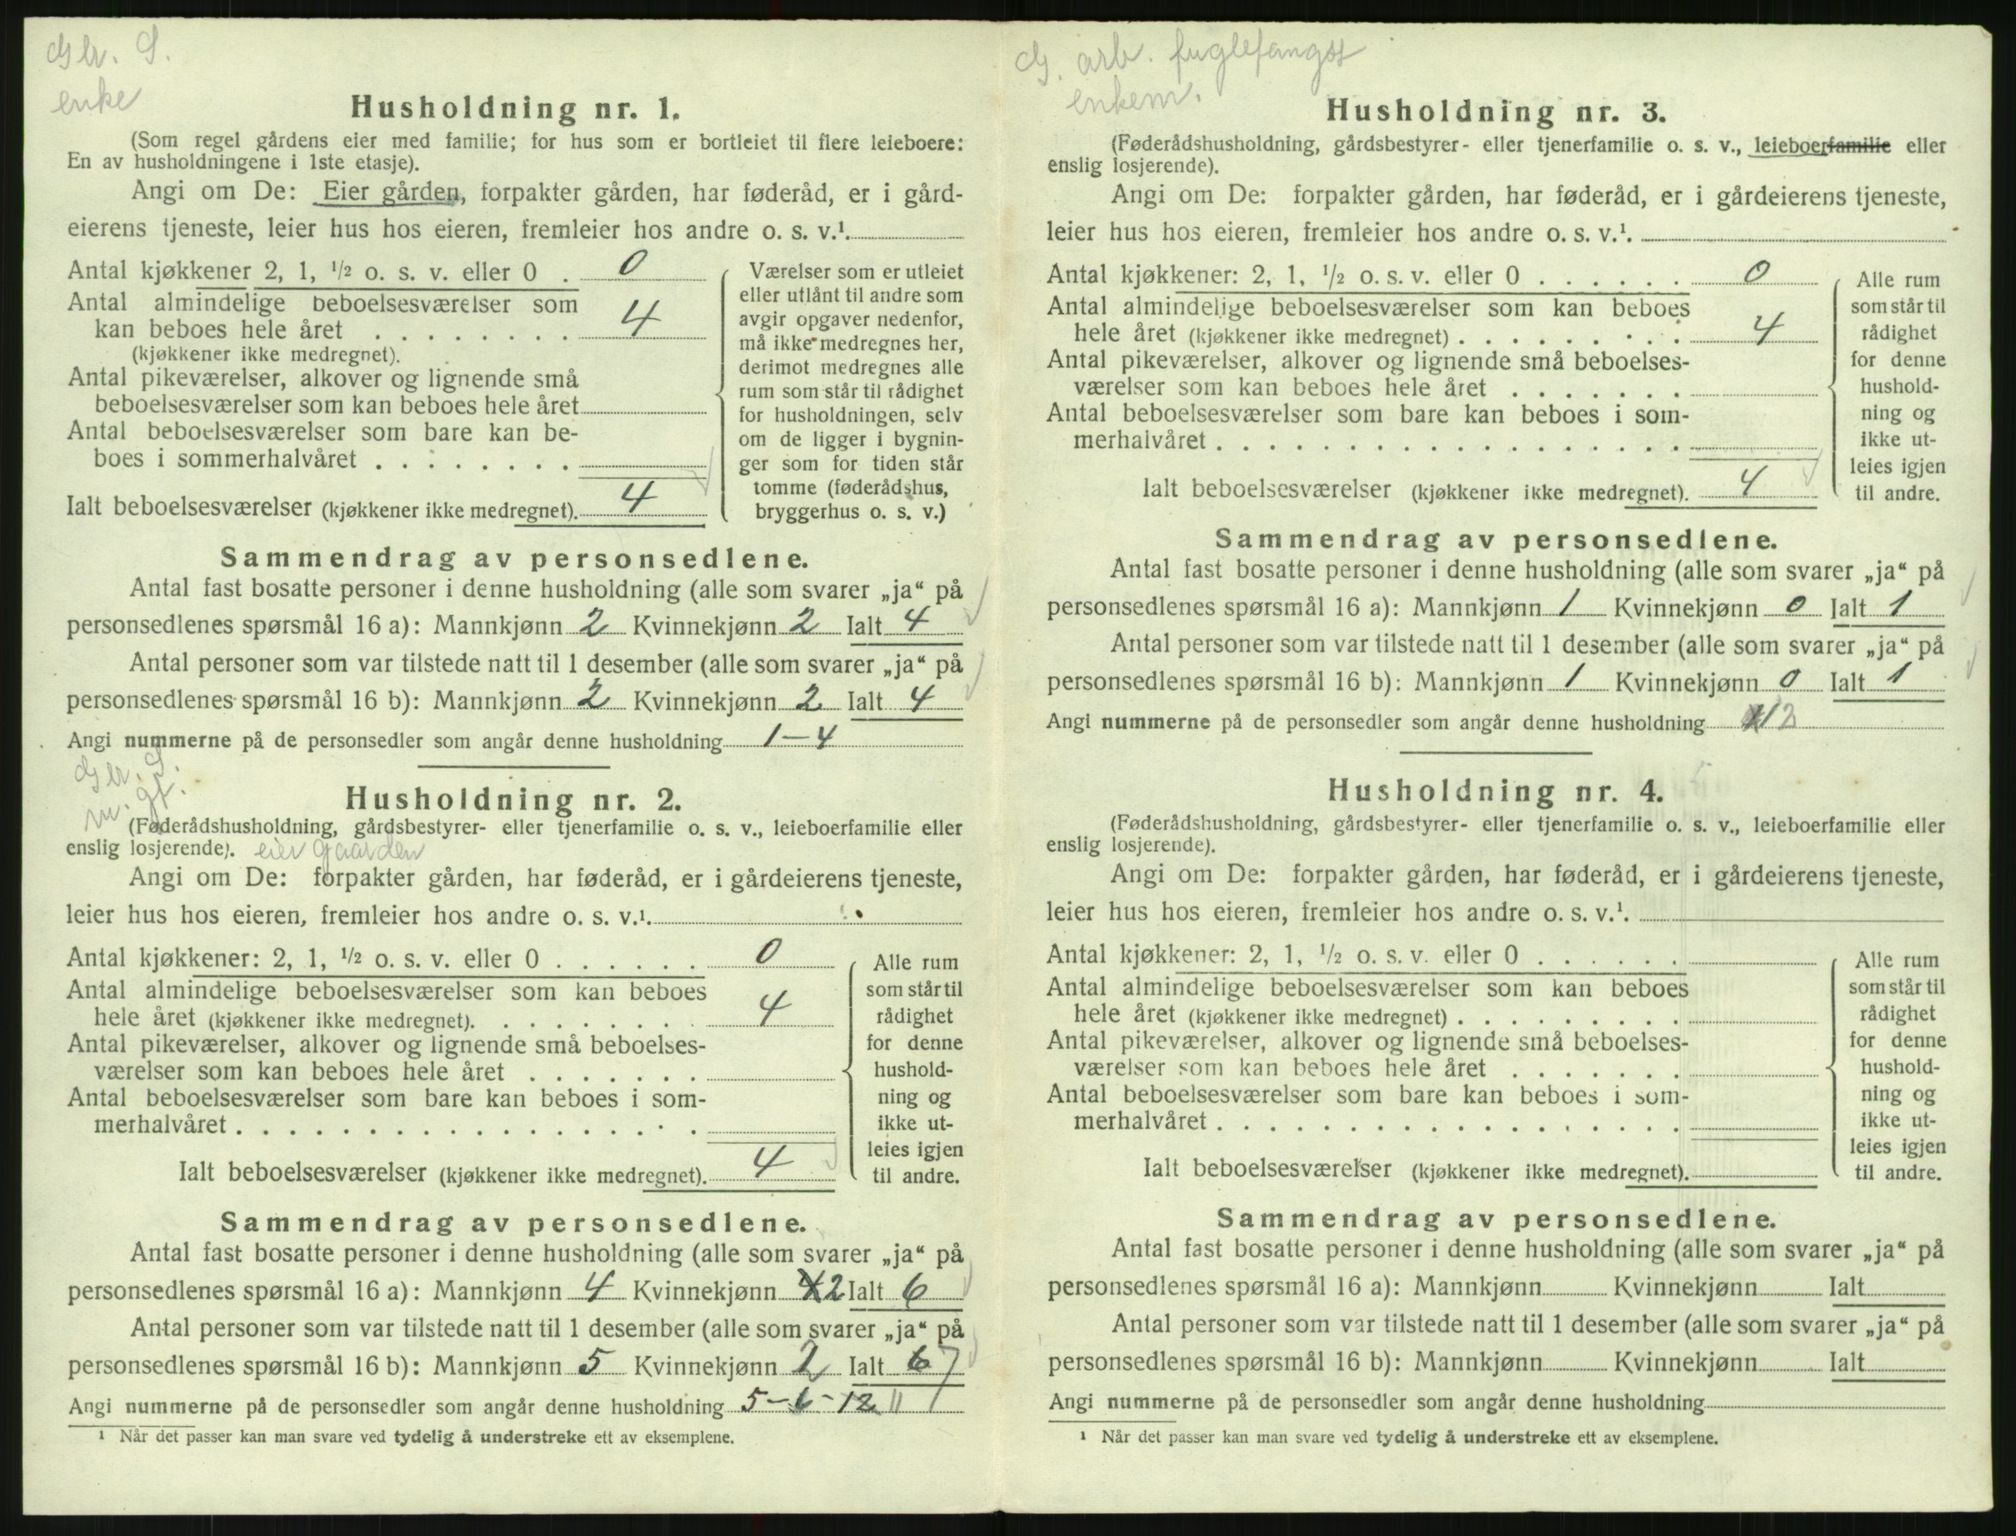 Gbr. S.
enke
Husholdning nr. 1.
(Som regel gårdens eier med familie; for hus som er bortleiet til flere leieboere:
En av husholdningene i 1ste etasje).
Angi om De: Eier gården, forpakter gården, har føderåd, er i gård-
eierens tjeneste, leier hus hos eieren, fremleier hos andre o. s. v.¹.
Antal kjøkkener 2, 1, 1/2 o. s. v. eller 0 . 0
Antal almindelige beboelsesværelser som
kan beboes hele året . . . . . . . . 4
(kjøkkener ikke medregnet).
Antal pikeværelser, alkover og lignende små
beboelsesværelser som kan beboes hele året
Antal beboelsesværelser som bare kan be-
boes i sommerhalvåret . . . . . . . .
Ialt beboelsesværelser (kjøkkener ikke medregnet). 4
Værelser som er utleiet
eller utlånt til andre som
avgir opgaver nedenfor,
må ikke medregnes her,
derimot medregnes alle
rum som står til rådighet
for husholdningen, selv
om de ligger i bygnin-
ger som for tiden står
tomme (føderådshus,
bryggerhus o. s. v.)
Sammendrag av personsedlene.
Antal fast bosatte personer i denne husholdning (alle som svarer „ja“ på
personsedlenes spørsmål 16 a): Mannkjønn 2 Kvinnekjønn 2 Ialt 4
Antal personer som var tilstede natt til 1 desember (alle som svarer „ja“ på
personsedlenes spørsmål 16 b): Mannkjønn 2 Kvinnekjønn 2 Ialt 4
Angi nummerne på de personsedler som angår denne husholdning 1-4
Gbr. S.
m. gf.
Husholdning nr. 2.
(Føderådshusholdning, gårdsbestyrer- eller tjenerfamilie o. s. v., leieboerfamilie eller
enslig losjerende). eier Gaarden
Angi om De: forpakter gården, har føderåd, er i gårdeierens tjeneste,
leier hus hos eieren, fremleier hos andre o. s. v.¹.
Antal kjøkkener: 2, 1, 1/2 o. s. v. eller 0 . . . . . . 0
Antal almindelige beboelsesværelser som kan beboes
hele året (kjøkkener ikke medregnet). . . . . . . . . 4
Antal pikeværelser, alkover og lignende små beboelses-
værelser som kan beboes hele året . . . . . . .
Antal beboelsesværelser som bare kan beboes i som-
merhalvåret . . . . . . . . . . . . . . . . . .
Ialt beboelsesværelser (kjøkkener ikke medregnet). 4
Alle rum
som står til
rådighet
for denne
hushold-
ning og
ikke ut-
leies igjen
til andre.
Sammendrag av personsedlene.
Antal fast bosatte personer i denne husholdning (alle som svarer „ja“ på
personsedlenes spørsmål 16 a): Mannkjønn 4 Kvinnekjønn 2 Ialt 6
Antal personer som var tilstede natt til 1 desember (alle som svarer „ja“ på
personsedlenes spørsmål 16 b): Mannkjønn 5 Kvinnekjønn 2 Ialt 6 7
Angi nummerne på de personsedler som angår denne husholdning 5-6-12 11
¹ Når det passer kan man svare ved tydelig å understreke ett av eksemplene.
G. arb. fuglefangst
enkem.
Husholdning nr. 3.
(Føderådshusholdning, gårdsbestyrer- eller tjenerfamilie o. s. v., leieboerfamilie eller
enslig losjerende).
Angi om De: forpakter gården, har føderåd, er i gårdeierens tjeneste,
leier hus hos eieren, fremleier hos andre o. s. v.¹.
Antal kjøkkener: 2, 1, 1/2 o. s. v. eller 0 . . . . . . 0
Antal almindelige beboelsesværelser som kan beboes
hele året (kjøkkener ikke medregnet) . . . . . . . . . 4
Antal pikeværelser, alkover og lignende små beboelses-
værelser som kan beboes hele året . . . . . . .
Antal beboelsesværelser som bare kan beboes i som-
merhalvåret . . . . . . . . . . . . . . . . . .
Ialt beboelsesværelser (kjøkkener ikke medregnet). 4
Alle rum
som står til
rådighet
for denne
hushold-
ning og
ikke ut-
leies igjen
til andre.
Sammendrag av personsedlene.
Antal fast bosatte personer i denne husholdning (alle som svarer „ja“ på
personsedlenes spørsmål 16 a): Mannkjønn 1 Kvinnekjønn 0 Ialt 1
Antal personer som var tilstede natt til 1 desember (alle som svarer „ja“ på
personsedlenes spørsmål 16 b): Mannkjønn 1 Kvinnekjønn 0 Ialt 1
Angi nummerne på de personsedler som angår denne husholdning 12
Husholdning nr. 4.
(Føderådshusholdning, gårdsbestyrer- eller tjenerfamilie o. s. v., leieboerfamilie eller
enslig losjerende).
Angi om De: forpakter gården, har føderåd, er i gårdeierens tjeneste,
leier hus hos eieren, fremleier hos andre o. s. v.¹.
Antal kjøkkener: 2, 1, 1/2 o. s. v. eller 0 . . . . . .
Antal almindelige beboelsesværelser som kan beboes
hele året (kjøkkener ikke medregnet) . . . . . . . . .
Antal pikeværelser, alkover og lignende små beboelses-
værelser som kan beboes hele året . . . . . . .
Antal beboelsesværelser som bare kan beboes i som-
merhalvåret . . . . . . . . . . . . . . . . . .
Ialt beboelsesværelser (kjøkkener ikke medregnet).
Alle rum
som står til
rådighet
for denne
hushold-
ning og
ikke ut-
leies igjen
til andre.
Sammendrag av personsedlene.
Antal fast bosatte personer i denne husholdning (alle som svarer „ja“ på
personsedlenes spørsmål 16 a): Mannkjønn Kvinnekjønn Ialt
Antal personer som var tilstede natt til 1 desember (alle som svarer „ja“ på
personsedlenes spørsmål 16 b): Mannkjønn Kvinnekjønn Ialt
Angi nummerne på de personsedler som angår denne husholdning
¹ Når det passer kan man svare ved tydelig å understreke ett av eksemplene.